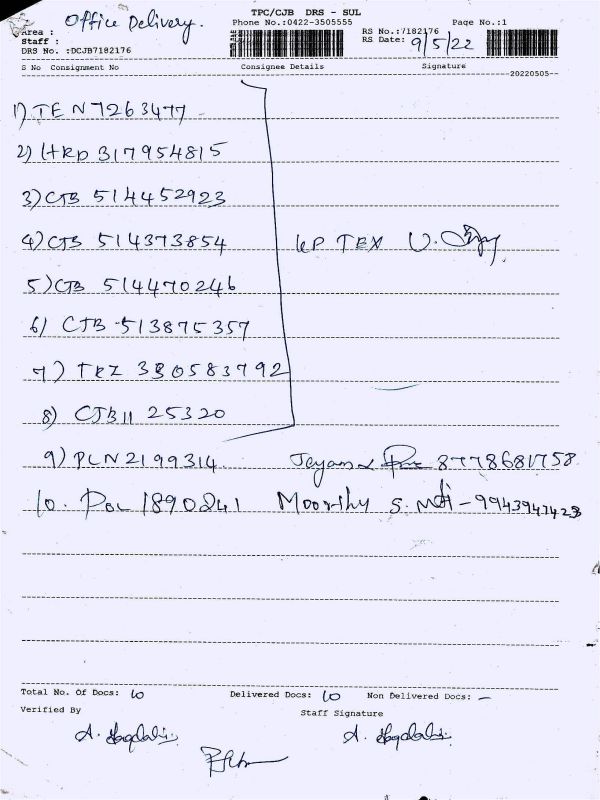 Office Delivery.
TPC/CJB DRS - SUL
Phone No.:0422-3505555 Page No.:1
Area :
Staff :
DRS No. :DCJB7182176
RS No.:7182176
RS Date: 9/5/22
S No Consignment No Consignee Details Signature
20220505
1) TEN 7263477
2) HRD 317954815
3) CJB 514452923
4) CJB 514373854 KP TEX V.
5) CJB 514470246
6) CJB 513875357
7) TRZ 380583792
8) CJB11 25320
9) PLN 2199314 Jayam 8778681758
10. POL 1890241 Moorthy S. - 9943947423
Total No. Of Docs: 10 Delivered Docs: 10 Non Delivered Docs: -
Verified By Staff Signature
A. A.